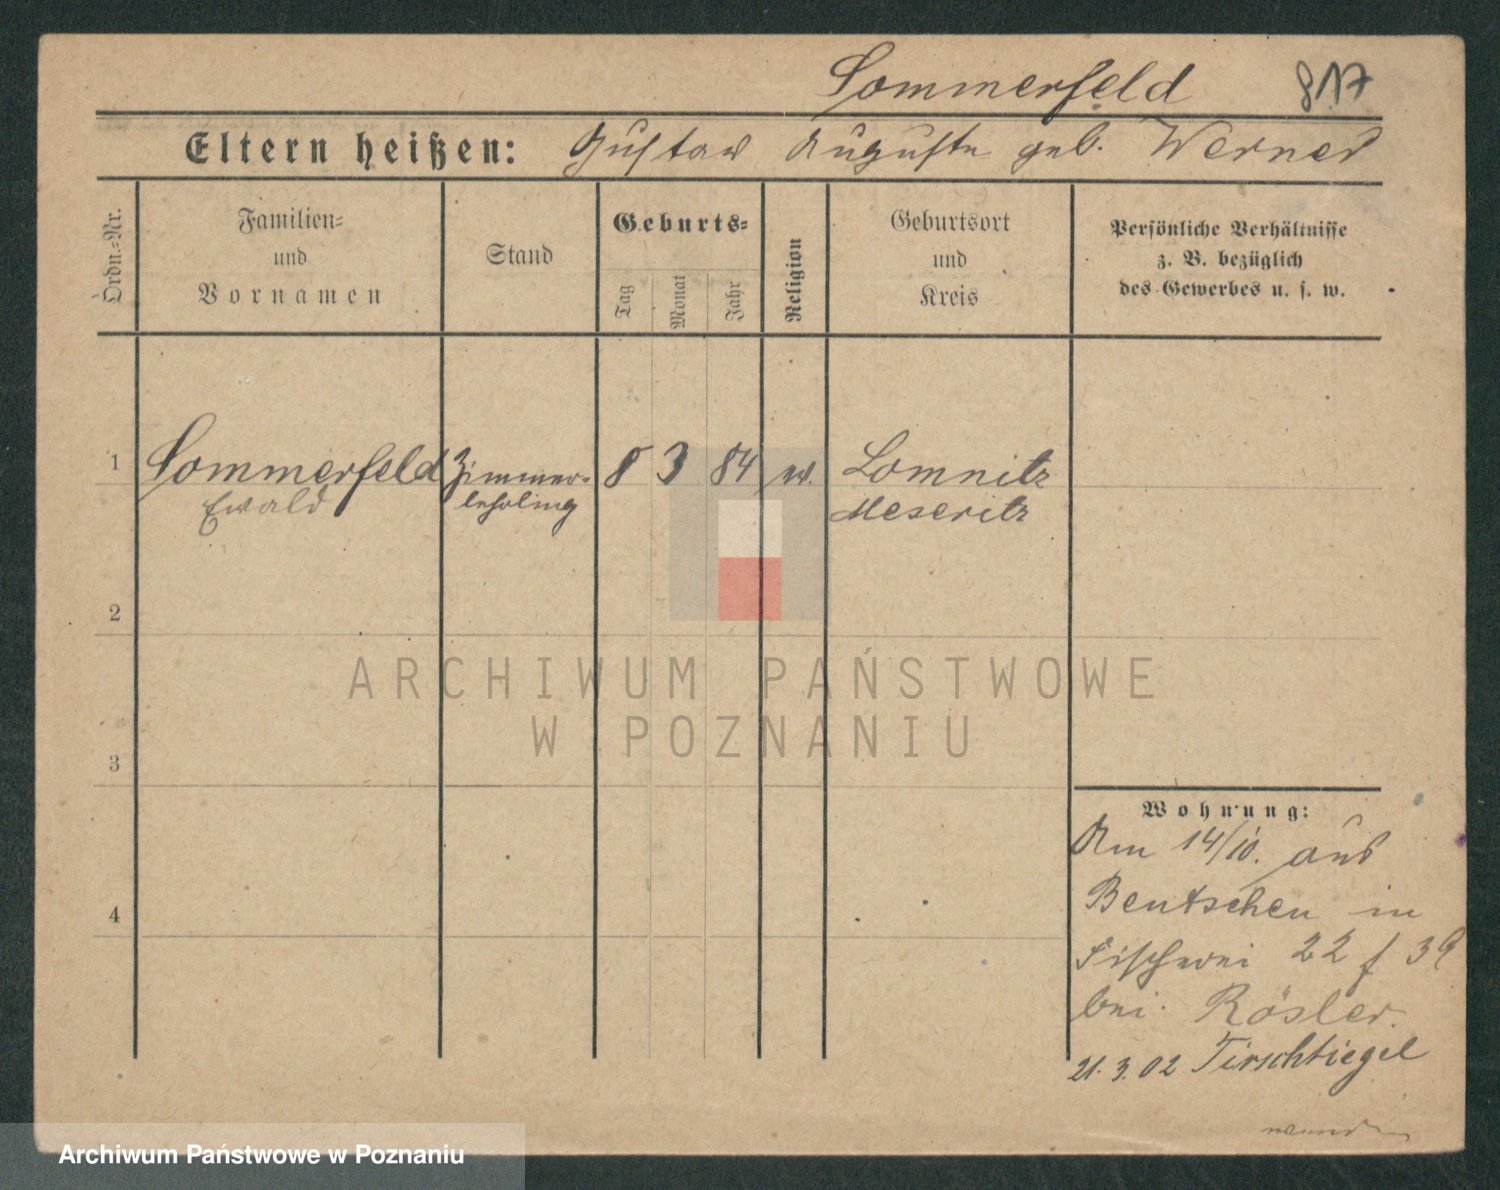 Sommerfeld 817
Eltern heißen: Gustav Auguste geb. Werner
Ordn.-Nr.
Familien-
und
Vornamen
Stand
Geburts-
Tag
Monat
Jahr
Religion
Geburtsort
und
Kreis
Persönliche Verhältnisse
z. B. bezüglich
des Gewerbes u. s. w.
1 Sommerfeld Zimmer- 8 3 84 ev. Lomnitz
Ewald lehrling Meseritz
2
3
4
ARCHIWUM PAŃSTWOWE
W POZNANIU
Wohnung:
Am 14/10. aus
Bentschen in
Fischerei 22 f 39
bei Rösler.
21.3.02 Tirschtiegel
Archiwum Państwowe w Poznaniu